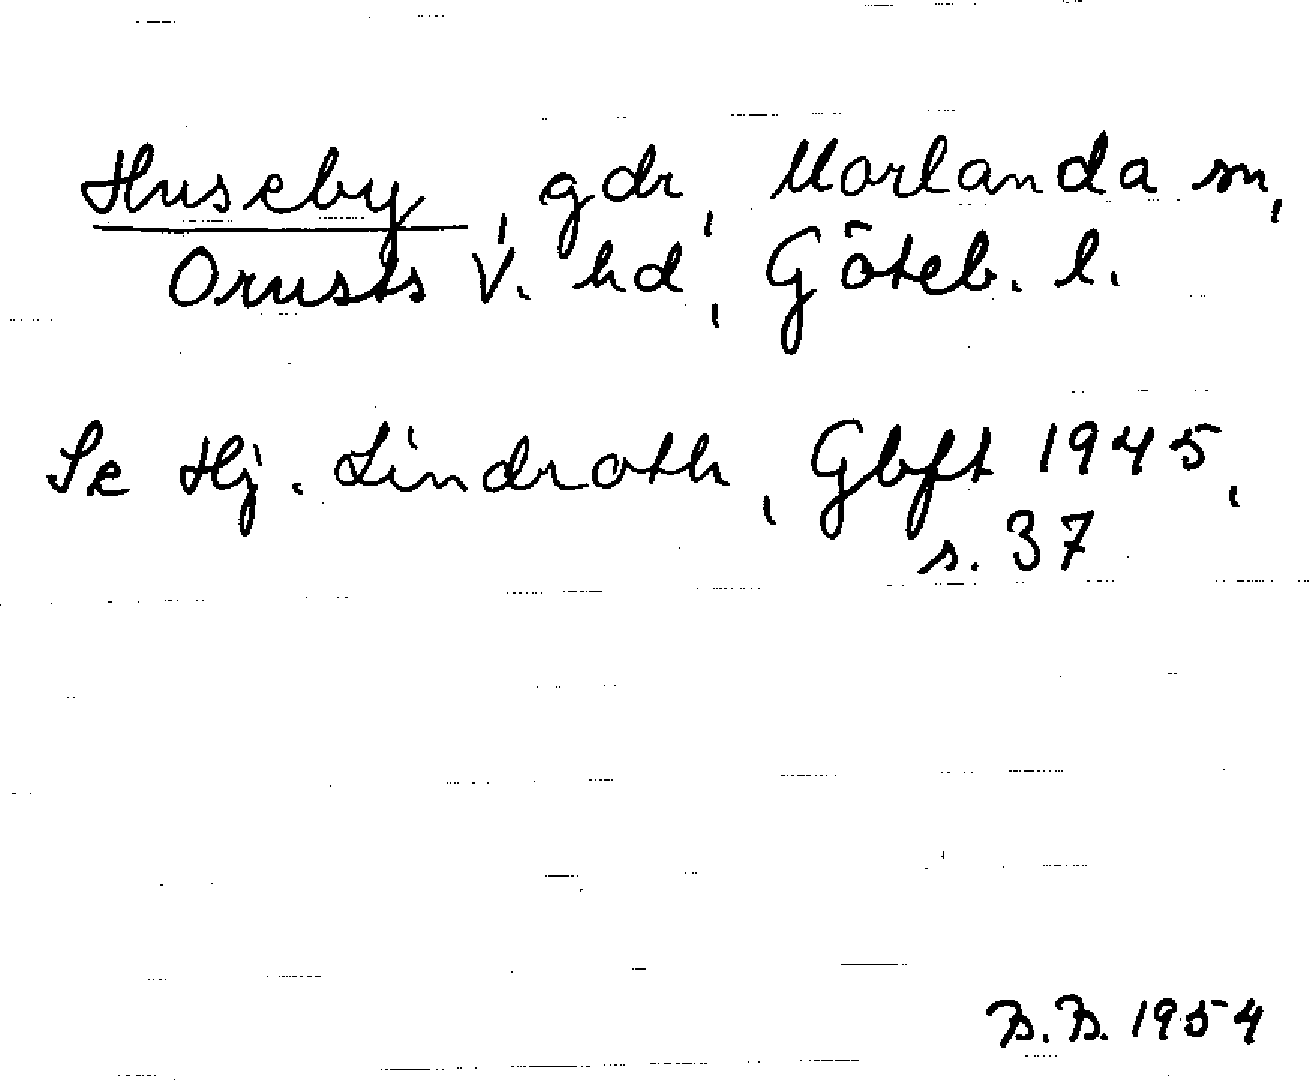 Huseby, gdr, Morlanda sn,
Orusts V. hd, Göteb. l.
Se Hj. Lindroth, Gbft 1945,
s. 37
B. B. 1954